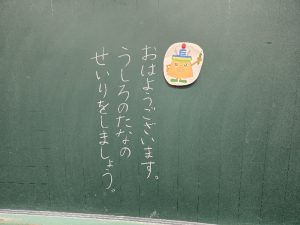 おはようございます。
うしろのたなの
せいりをしましょう。